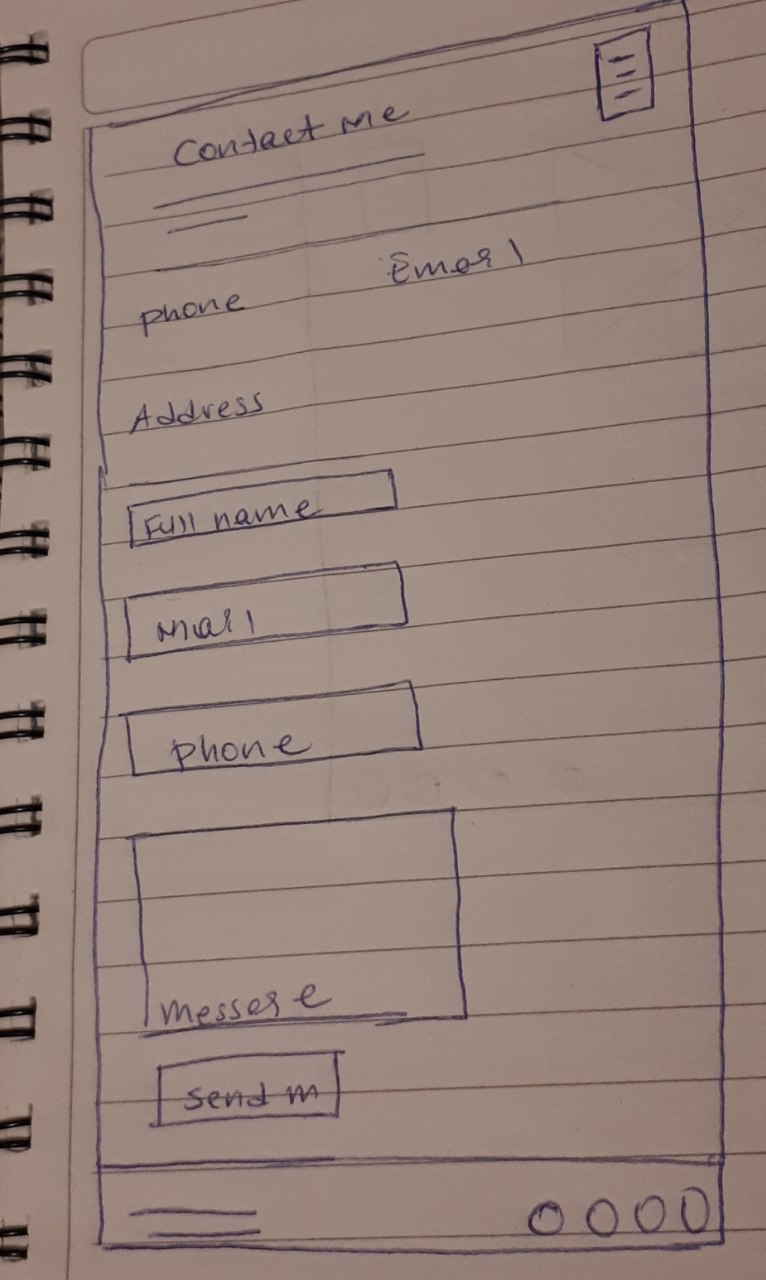 Contact Me
phone Email
Address
Full name
mail
phone
messase
send m